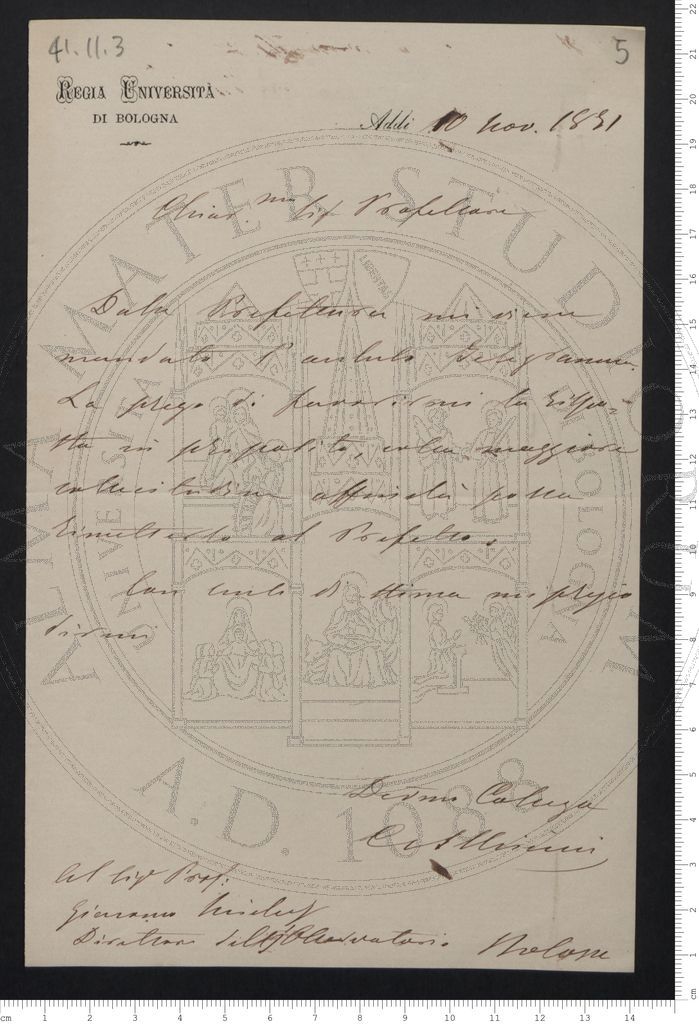 41.11.3
5
REGIA UNIVERSITÀ
DI BOLOGNA
Addì 10 nov. 1891
Chiar.mo Sig. Professore
Dalla Prefettura mi viene
mandato l'accluso Telegramma.
La prego di favorirmi la rispo-
sta in proposito, colla maggiore
sollecitudine affinchè possa
rimetterlo al Prefetto.
Con sensi di stima mi pregio
dirmi
Devmo Collega
Al Sigr Prof.
Direttore dell'Osservatorio Bologna
ALMA MATER STUDIORUM
A.D. 1088